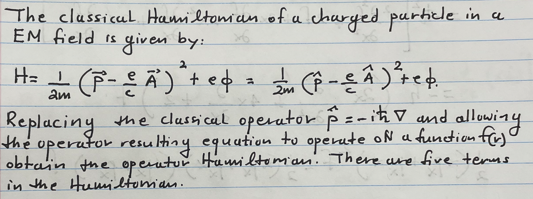 The classical Hamiltonian of a charged particle in a
EM field is given by:
H = 1/2m (p⃗ - e/c A⃗)² + eϕ = 1/2m (p̂ - e/c Â)² + eϕ.
Replacing the classical operator p̂ = -iħ∇ and allowing
the operator resulting equation to operate oN a function f(r)
obtain the operator Hamiltonian. There are five terms
in the Hamiltonian.